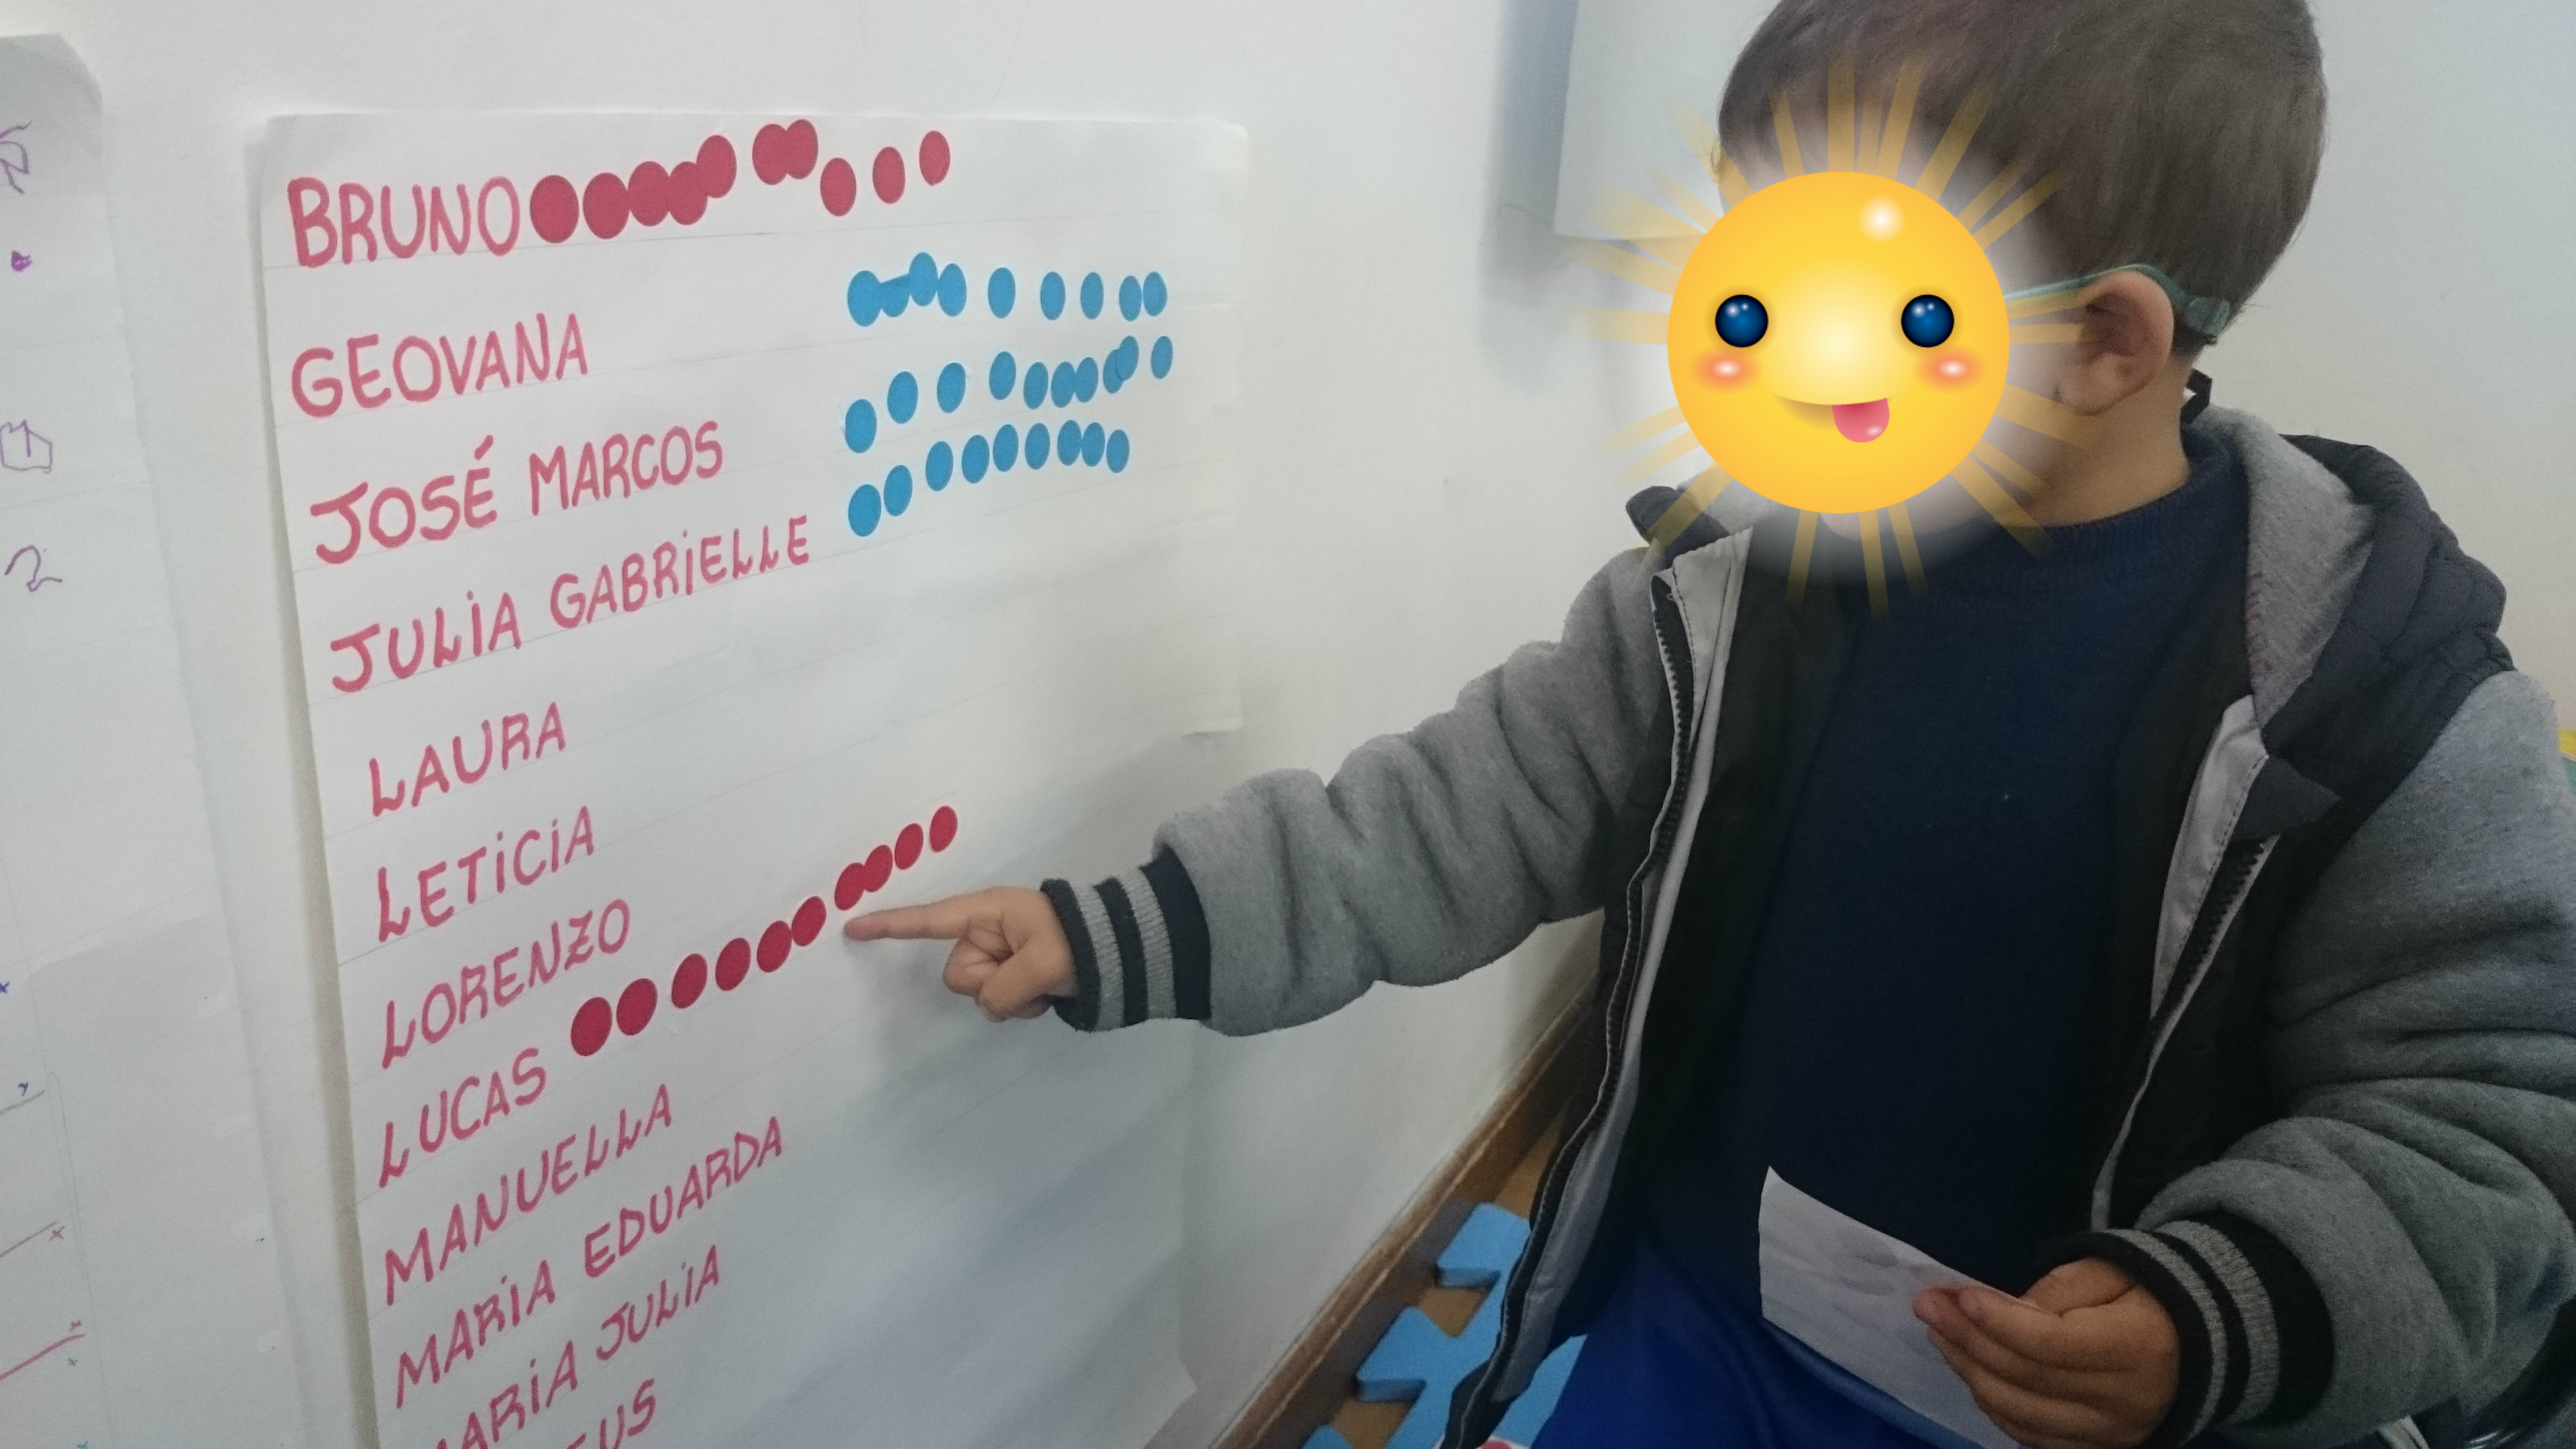 BRUNO
GEOVANA
JOSÉ MARCOS
JULIA GABRIELLE
LAURA
LETICIA
LORENZO
LUCAS
MANUELLA
MARIA EDUARDA
MARIA JULIA